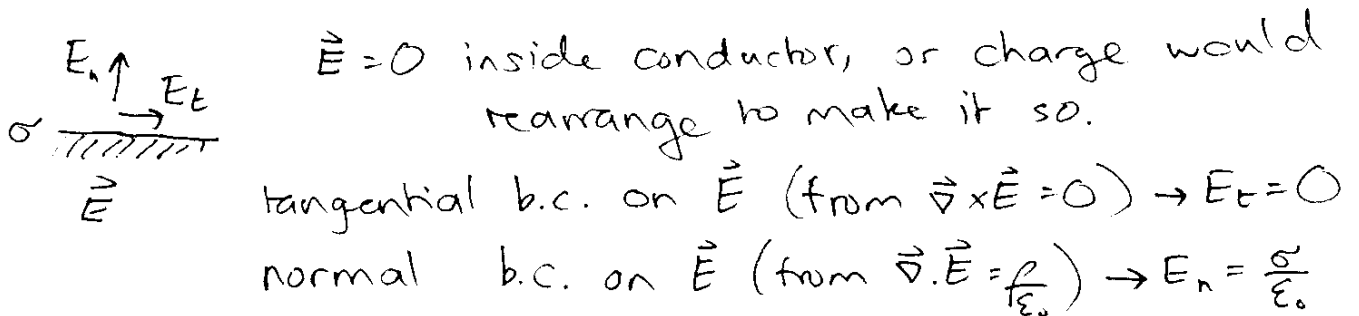 Eₙ Eₜ
σ
E⃗
E⃗ = 0 inside conductor, or charge would
rearrange to make it so.
tangential b.c. on E⃗ (from ∇⃗ × E⃗ = 0) → Eₜ = 0
normal b.c. on E⃗ (from ∇⃗ . E⃗ = ρ/ε₀) → Eₙ = σ/ε₀